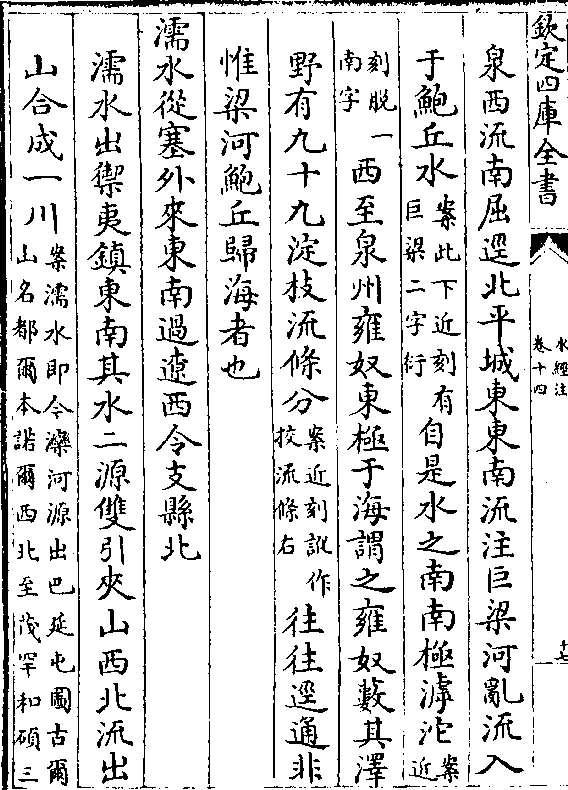 欽定四庫全書
水經注
卷十四
十七
泉西流南屈逕北平城東東南流注巨梁河亂流入
于鮑丘水案此下近刻有巨梁二字衍自是水之南南極滹沱案近
刻脱一南字西至泉州雍奴東極于海謂之雍奴藪其澤
野有九十九淀枝流條分案近刻訛作技流條右往往逕通非
惟梁河鮑丘歸海者也
濡水從塞外來東南過遼西令支縣北
濡水出禦夷鎮東南其水二源雙引夾山西北流出
山合成一川案濡水即今灤河源出巴延屯圖古爾山名都爾本諾爾西北至茂罕和碩三